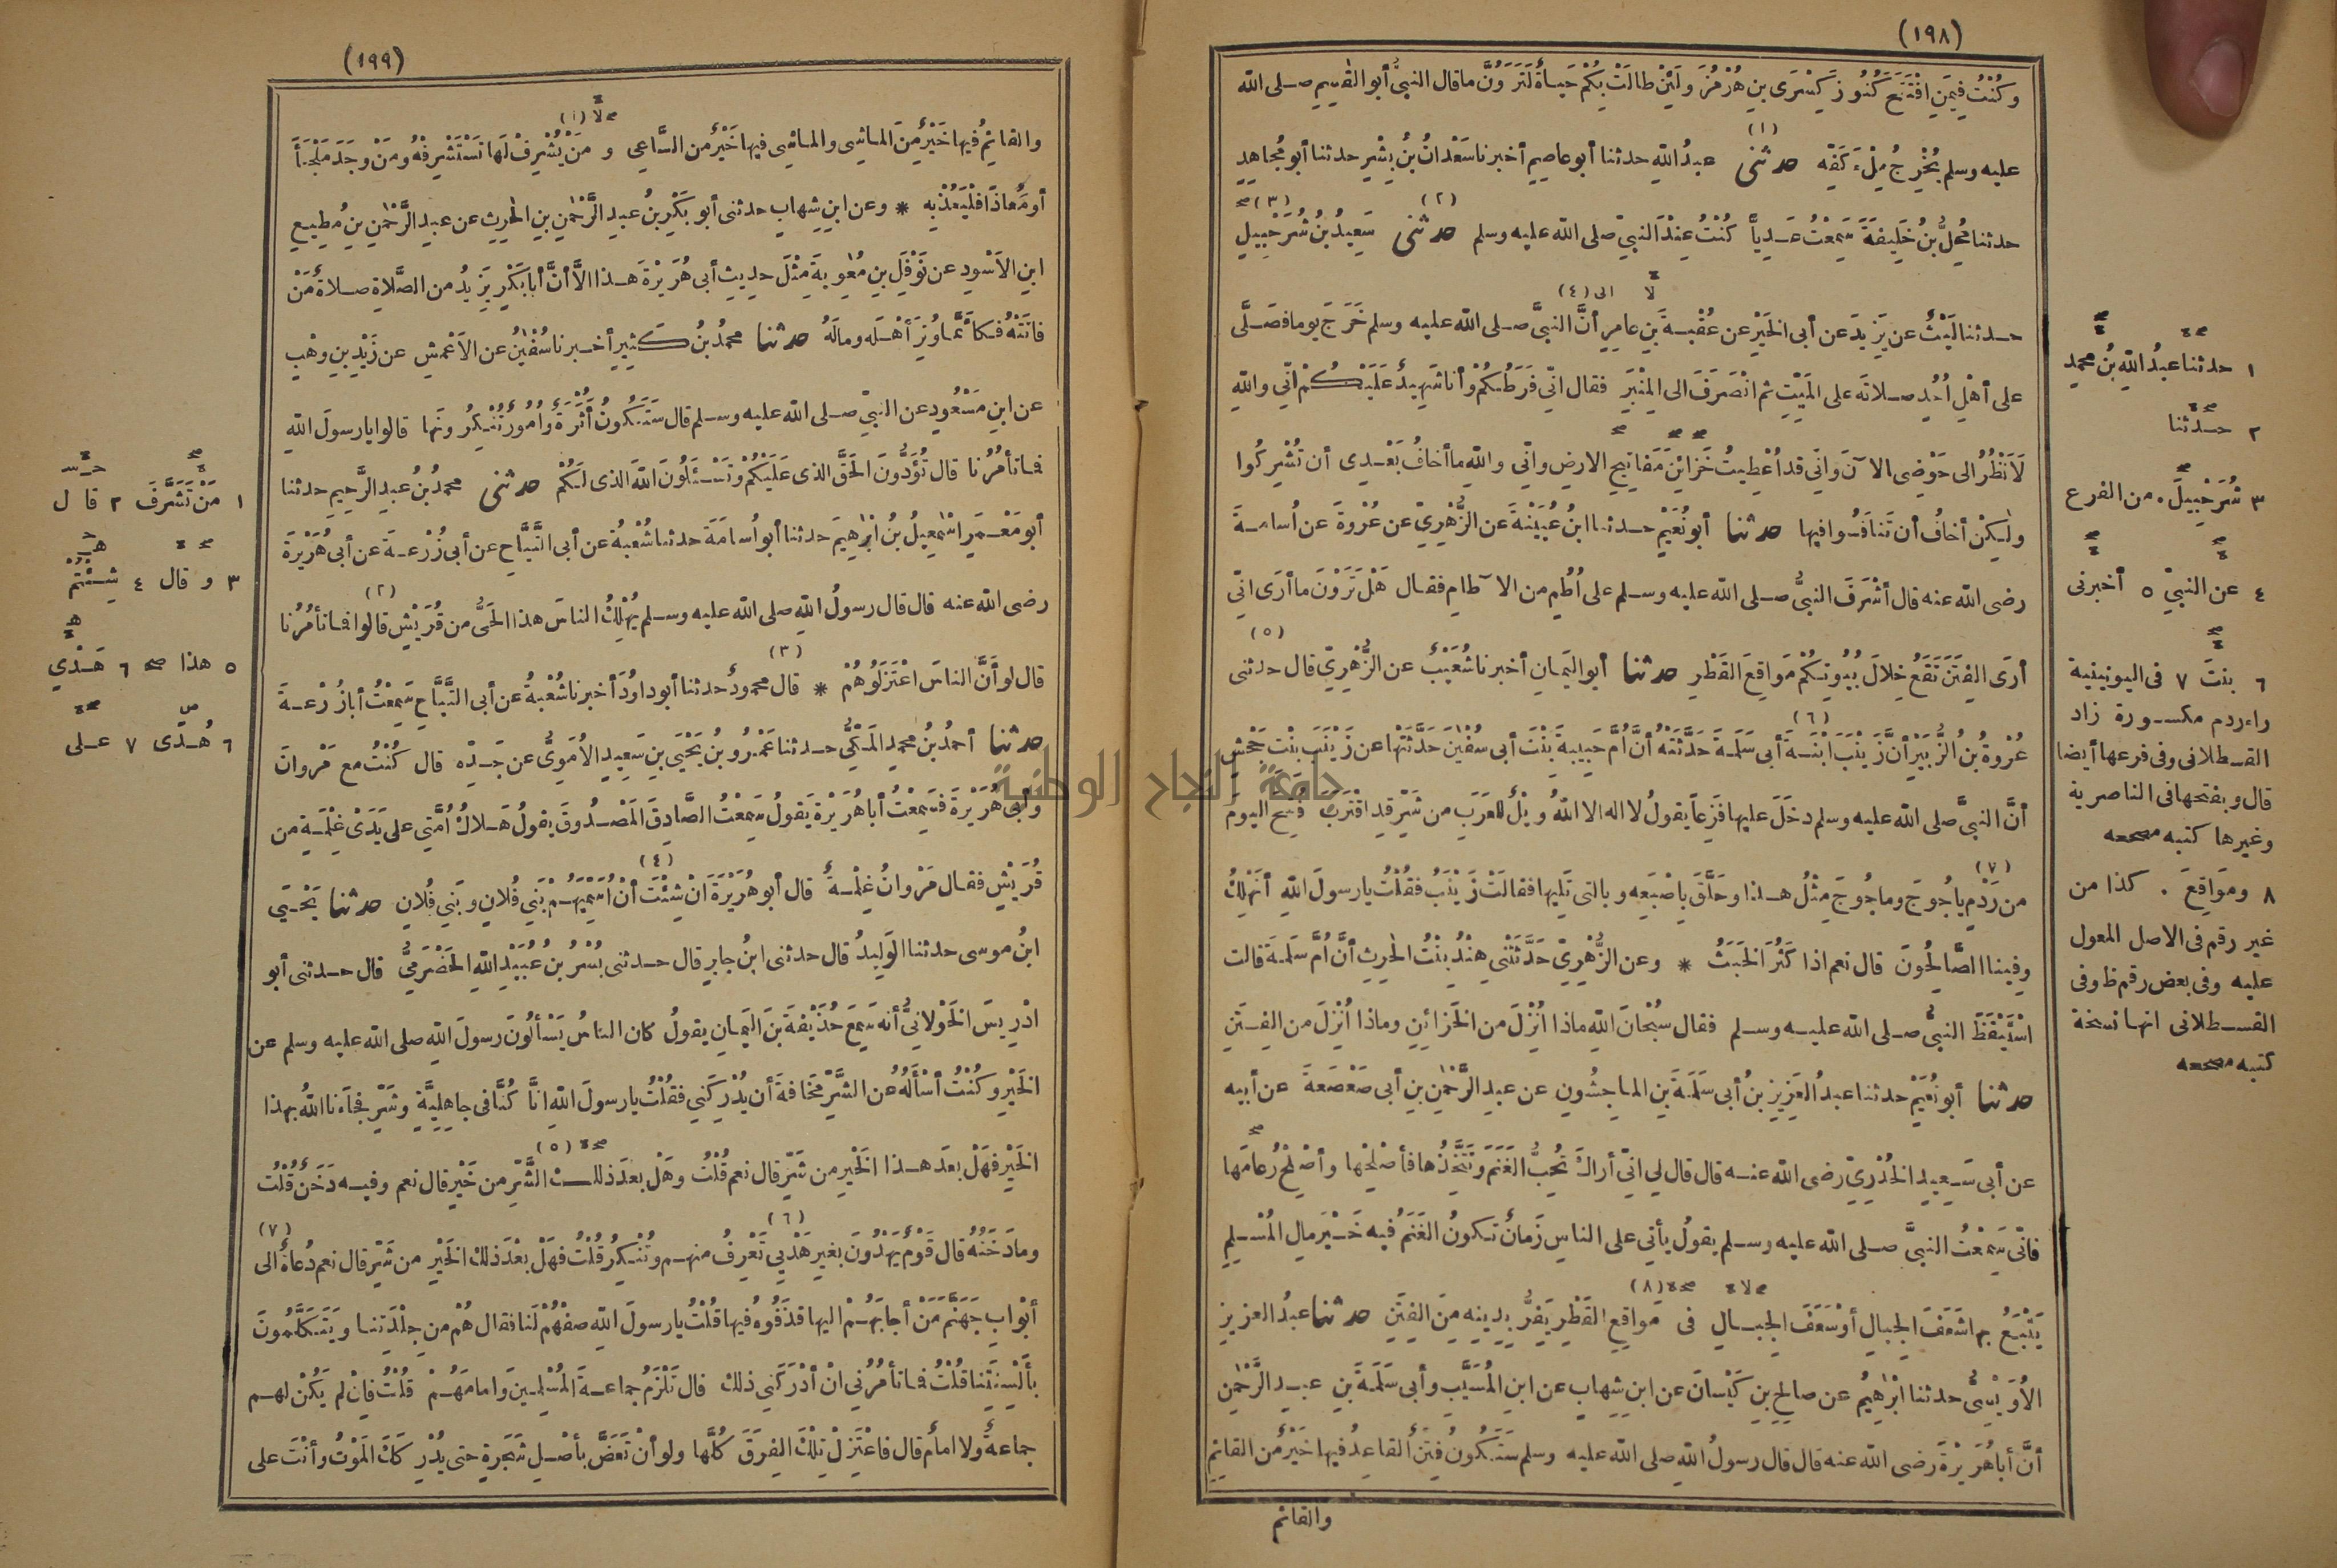 (١٩٨)
وَكُنْتُ فِيمَنِ افْتَتَحَ كُنُوزَ كِسْرَى بنِ هُرْمُزَ ولَئِنْ طالَتْ بِكُمْ حَياةٌ لَتَرَوُنَّ ما قال النبيُّ أبو القٰسِمِ صلى الله
(١)
عليه وسلم يُخْرِجُ مِلْءَ كَفِّه حدثنى عبدُ اللهِ حدثنا أبو عاصِمٍ أخبرنا سَعْدَانُ بنُ بِشْرٍ حدثنا أبو مُجاهِدٍ
(٢) (٣)
حدثنا مُحِلُّ بنُ خَلِيفَةَ سَمِعْتُ عَدِيًّا كُنْتُ عِنْدَ النبيِّ صلى الله عليه وسلم حدثنى سَعِيدُ بنُ شُرَحْبِيلٍ
لا الى (٤)
حدثنا لَيْثٌ عن يَزِيدَ عن أبى الخَيْرِ عن عُقْبةَ بنِ عامِرٍ أنَّ النبيَّ صلى الله عليه وسلم خَرَجَ يوما فصَلَّى
على أهْلِ أُحُدٍ صلاتَه على المَيِّتِ ثم انْصَرَفَ الى المِنْبَرِ فقال انِّى فَرَطُكُمْ وأنا شَهِيدٌ عَلَيْكُمْ انِّى واللهِ
لَأَنْظُرُ الى حَوْضِى الآنَ وَانِّى قد أُعْطِيتُ خَزَائِنَ مَفَاتِيحِ الارضِ وانِّى واللهِ ما أخافُ بَعْدِى أن تُشْرِكُوا
ولٰكِنْ أخافُ أن تَنافَسُوا فيها حدثنا أبو نُعَيْمٍ حدثنا ابنُ عُيَيْنَةَ عن الزُّهْرِىِّ عن عُرْوَةَ عن أُسامةَ
رضى الله عنه قال أشْرَفَ النبيُّ صلى الله عليه وسلم على أُطُمٍ من الآطامِ فقال هَلْ تَرَوْنَ ما أرَى انِّى
(٥)
أرَى الفِتَنَ تَقَعُ خِلالَ بُيُوتِكُمْ مَواقِعَ القَطْرِ حدثنا أبو اليَمانِ أخبرنا شُعَيْبٌ عن الزُّهْرِىِّ قال حدثنى
(٦)
عُرْوةُ بنُ الزُّبَيْرِ أنَّ زَيْنَبَ ابْنَةَ أبى سَلَمةَ حَدَّثَتْهُ أنَّ أُمَّ حَبِيبةَ بِنْتَ أبى سُفْيٰنَ حَدَّثَتْها عن زَيْنَبَ بِنْتِ جَحْشٍ
أنَّ النبيَّ صلى الله عليه وسلم دخَلَ عليها فَزِعاً يقولُ لا اله الا اللهُ ويْلٌ للعَرَبِ من شَرٍّ قدِ اقْتَرَبَ فُتِحَ اليومَ
(٧)
من رَدْمِ ياجُوجَ وماجُوجَ مِثْلُ هذا وحَلَّقَ بِاصْبَعِه وبالتى تَلِيها فقالَتْ زَيْنَبُ فقُلْتُ يا رسولَ اللهِ أنَهْلِكُ
وفينا الصَّالِحُونَ قال نعم اذا كَثُرَ الخَبَثُ * وعن الزُّهْرِىِّ حَدَّثَتْنِى هِنْدُ بِنْتُ الحٰرِثِ أنَّ أُمَّ سَلَمةَ قالت
اسْتَيْقَظَ النبيُّ صلى الله عليه وسلم فقال سُبْحانَ اللهِ ماذا أُنْزِلَ من الخَزائِنِ وماذا أُنْزِلَ من الفِتَنِ
حدثنا أبو نُعَيْمٍ حدثنا عبدُ العَزِيزِ بنُ أبى سَلَمةَ بنِ الماجِشُونِ عن عبدِ الرَّحْمٰنِ بنِ أبى صَعْصَعةَ عن أبيه
عن أبى سَعِيدٍ الخُدْرِىِّ رضى الله عنه قال قال لى انِّى أراكَ تُحِبُّ الغَنَمَ وتَتَّخِذُها فأصْلِحْها وأصْلِحْ رُعامَها
فانِّى سَمِعْتُ النبيَّ صلى الله عليه وسلم يقولُ يأتى على الناسِ زَمانٌ تكونُ الغَنَمُ فيه خَيْرَ مالِ المُسْلِمِ
(٨)
يَتْبَعُ بها شَعَفَ الجِبالِ أوْ سَعَفَ الجبالِ فى مَواقِعِ القَطْرِ يَفِرُّ بِدِينِه مِنَ الفِتَنِ حدثنا عبدُ العزيزِ
الأُوَيْسِىُّ حدثنا ابْرٰهِيمُ عن صالِحِ بنِ كَيْسانَ عن ابنِ شِهابٍ عن ابنِ المُسَيَّبِ وأبى سَلَمةَ بنِ عبدِ الرَّحْمٰنِ
أنَّ أبا هُرَيْرةَ رضى الله عنه قال قال رسولُ اللهِ صلى الله عليه وسلم سَتَكُونُ فِتَنٌ القاعِدُ فيها خَيْرٌ من القائِمِ
والقائم
١ حدثنا عبدُ اللهِ بنُ محمدٍ
٢ حدثنا
٣ شُرَحْبِيلَ. من الفرع
٤ عن النبيِّ ٥ أخبرنى
٦ بنتَ ٧ فى اليونينية
راء ردم مكسورة زاد
القسطلانى وفى فرعها أيضا
قال وبفتحها فى الناصرية
وغيرها كتبه مصححه
٨ ومَواقِعَ . كذا من
غير رقم فى الاصل المعول
عليه وفى بعض رقم ظ وفى
القسطلانى انها نسخة
كتبه مصححه
(١٩٩)
لا (١)
والقائِمُ فيها خَيْرٌ مِنَ الماشِى والماشِى فيها خَيْرٌ من السَّاعِى و مَنْ يُشْرِفْ لَها تَسْتَشْرِفْهُ ومَنْ وجَدَ مَلْجَأً
أو مَعَاذًا فَلْيَعُذْ بِه * وعن ابنِ شِهابٍ حدثنى أبو بَكْرِ بنُ عبدِ الرَّحْمٰنِ بنِ الحٰرِثِ عن عبدِ الرَّحْمٰنِ بنِ مُطِيعِ
ابنِ الاَسْودِ عن نَوْفَلِ بنِ مُعٰوِيةَ مِثْلَ حديثِ أبى هُرَيْرةَ هذا الَّا أنَّ أبا بَكْرٍ يَزِيدُ من الصَّلاةِ صلاةٌ مَنْ
فاتَتْهُ فكأَنَّما وُتِرَ أهْلَه ومالَهُ حدثنا محمدُ بنُ كَثِيرٍ أخبرنا سُفْيٰنُ عن الاَعْمَشِ عن زَيْدِ بنِ وهْبٍ
عن ابنِ مَسْعُودٍ عن النبيِّ صلى الله عليه وسلم قال سَتَكُونُ أَثَرَةٌ وأُمُورٌ تُنْكِرُونَها قالوا يا رسولَ اللهِ
فما تأمُرُنا قال تُؤَدُّونَ الحَقَّ الذى عَلَيْكُمْ وتَسْئَلُونَ اللهَ الذى لَكُمْ حدثنى محمدُ بنُ عبدِ الرَّحِيمِ حدثنا
أبو مَعْمَرٍ اسْمٰعِيلُ بنُ ابْرٰهِيمَ حدثنا أبو أُسامَةَ حدثنا شُعْبةُ عن أبى التَّيَّاحِ عن أبى زُرْعةَ عن أبى هُرَيْرةَ
(٢)
رضى الله عنه قال قال رسولُ اللهِ صلى الله عليه وسلم يُهْلِكُ الناسَ هذا الحَىُّ من قُرَيْشٍ قالوا فما تأمُرُنا
(٣)
قال لو أنَّ الناسَ اعْتَزَلُوهُمْ * قال محمودٌ حدثنا أبو داوُدَ أخبرنا شُعْبةُ عن أبى التَّيَّاحِ سَمِعْتُ أبا زُرْعةَ
حدثنا أحمدُ بنُ محمدٍ المَكِّىُّ حدثنا عَمْرُو بنُ يَحْيَى بنِ سَعِيدٍ الأُمَوِىُّ عن جَدِّه قال كُنْتُ مع مَرْوانَ
وأبى هُرَيْرةَ فسَمِعْتُ أبا هُرَيْرةَ يَقولُ سَمِعْتُ الصَّادِقَ المَصْدُوقَ يقولُ هَلاكُ أُمَّتِى على يَدَىْ غِلْمةٍ من
(٤)
قُرَيْشٍ فقال مَرْوانُ غِلْمةٌ قال أبو هُرَيْرةَ انْ شِئْتَ أنْ أُسَمِّيَهُمْ بَنِى فُلانٍ وبَنِى فُلانٍ حدثنا يَحْيَى
ابنُ موسى حدثنا الوَلِيدُ قال حدثنى ابنُ جابِرٍ قال حدثنى بُسْرُ بنُ عُبَيْدِ اللهِ الحَضْرَمِىُّ قال حدثنى أبو
ادْرِيسَ الخَوْلانِىُّ أنه سَمِعَ حُذَيْفةَ بنَ اليَمانِ يقولُ كان الناسُ يَسْألُونَ رسولَ اللهِ صلى الله عليه وسلم عن
الخَيْرِ وكُنْتُ أسْأَلُهُ عن الشَّرِّ مَخافةَ أن يُدْرِكَنِى فقُلْتُ يا رسولَ اللهِ انَّا كُنَّا فى جاهِلِيَّةٍ وشَرٍّ فجاءَنا اللهُ بهذا
(٥)
الخَيْرِ فهَلْ بعدَ هذا الخَيْرِ من شَرٍّ قال نعم قُلْتُ وهَلْ بعدَ ذلك الشَّرِّ من خَيْرٍ قال نعم وفيه دَخَنٌ قُلْتُ
(٦) (٧)
وما دَخَنُهُ قال قَوْمٌ يَهْدُونَ بغيرِ هَدْيِى تَعْرِفُ منهم وتُنْكِرُ قُلْتُ فهَلْ بعْدَ ذلك الخَيْرِ من شَرٍّ قال نعم دُعاةٌ الى
أبْوابِ جَهَنَّمَ مَنْ أجابَهُمْ اليها قذَفُوهُ فيها قُلْتُ يا رسولَ اللهِ صِفْهُمْ لَنا فقال هُمْ من جِلْدَتِنا ويَتَكَلَّمُونَ
بألْسِنَتِنا قُلْتُ فما تأمُرُنِى انْ أدْرَكَنِى ذلك قال تَلْزَمُ جماعةَ المُسْلِمِينَ وامامَهُمْ قُلْتُ فانْ لم يَكُنْ لهم
جماعةٌ ولا امامٌ قال فاعْتَزِلْ تِلْكَ الفِرَقَ كُلَّها ولو أنْ تَعَضَّ بأصْلِ شَجَرةٍ حتى يُدْرِكَكَ المَوْتُ وأنْتَ على
١ مَنْ تَشَرَّفَ ٢ قال
٣ وقال ٤ شِئْتُمْ
٥ هذا صح ٦ هَدْيِي
٦ هُدًى ٧ على
جامعة النجاح الوطنية